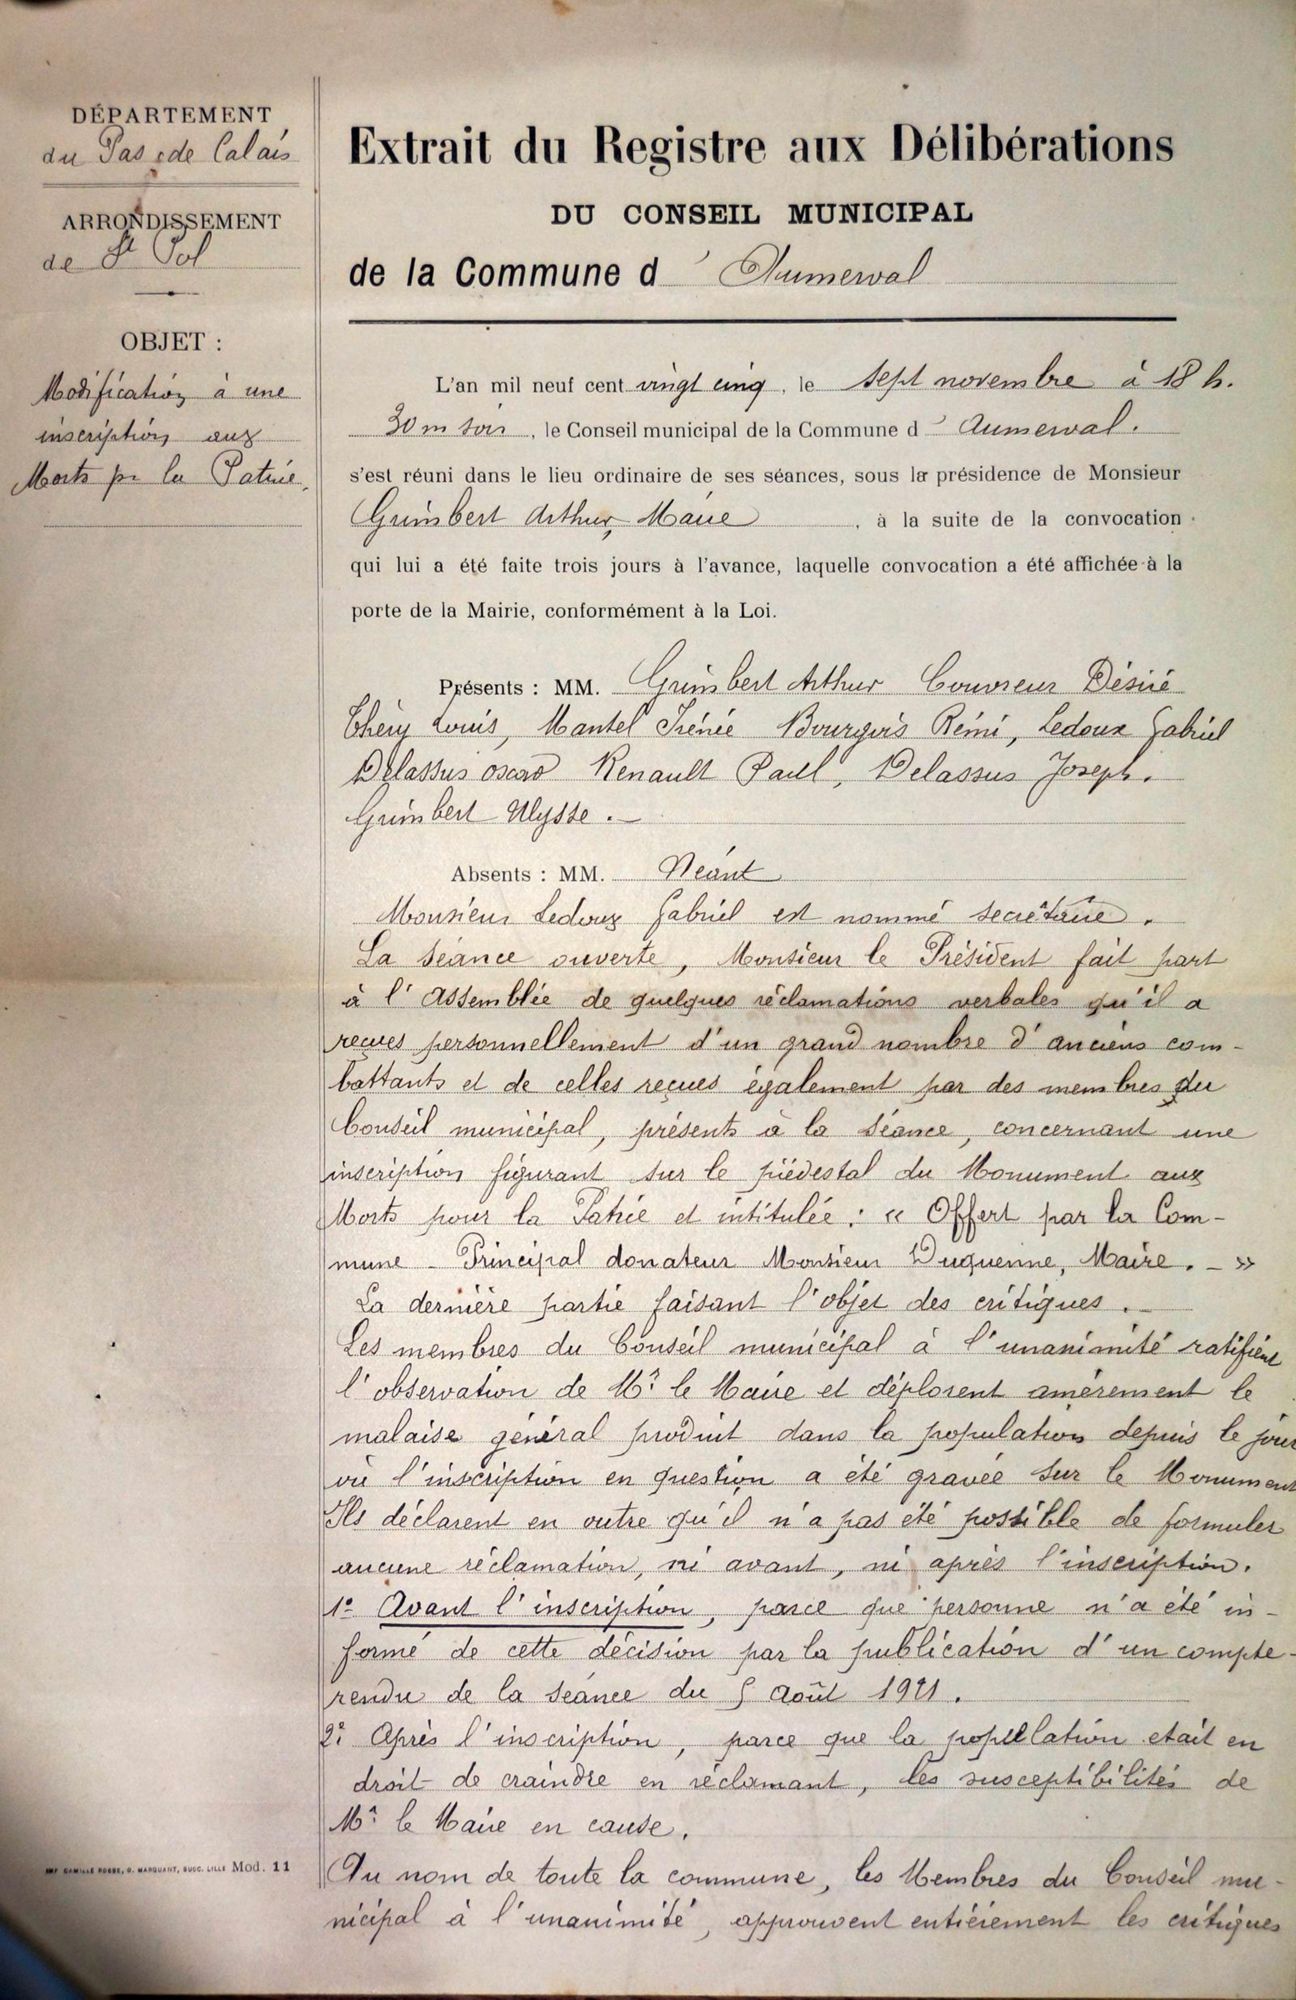 DÉPARTEMENT
du Pas de Calais
ARRONDISSEMENT
de St Pol
OBJET :
Modification à une
inscription aux
Morts pr la Patrie.
Extrait du Registre aux Délibérations
DU CONSEIL MUNICIPAL
de la Commune d' Aumerval
L'an mil neuf cent vingt cinq, le sept novembre à 18 h.
30 m soir, le Conseil municipal de la Commune d' Aumerval.
s'est réuni dans le lieu ordinaire de ses séances, sous la présidence de Monsieur
Grimbert Arthur, Maire, à la suite de la convocation
qui lui a été faite trois jours à l'avance, laquelle convocation a été affichée à la
porte de la Mairie, conformément à la Loi.
Présents : MM. Grimbert Arthur Couvreur Désiré
Théry Louis, Mantel Irénée Bourgois Rémi, Ledoux Gabriel
Delassus Oscar Renault Paul, Delassus Joseph.
Grimbert Ulysse. –
Absents : MM. Néant
Monsieur Ledoux Gabriel est nommé secrétaire.
La séance ouverte, Monsieur le Président fait part
à l'Assemblée de quelques réclamations verbales qu'il a
reçues personnellement d'un grand nombre d'anciens com-
battants et de celles reçues également par des membres du
Conseil municipal, présents à la séance, concernant une
inscription figurant sur le piédestal du Monument aux
Morts pour la Patrie et intitulée : « Offert par la Com-
mune – Principal donateur Monsieur Duquenne, Maire. – »
La dernière partie faisant l'objet des critiques. –
Les membres du Conseil municipal à l'unanimité ratifient
l'observation de Mr le Maire et déplorent amèrement le
malaise général produit dans la population depuis le jour
où l'inscription en question a été gravée sur le Monument
Ils déclarent en outre qu'il n'a pas été possible de formuler
aucune réclamation, ni avant, ni après l'inscription.
1º Avant l'inscription, parce que personne n'a été in-
formé de cette décision par la publication d'un compte-
rendu de la séance du 5 Août 1921.
2º Après l'inscription, parce que la population etait en
droit de craindre en réclamant, les susceptibilités de
Mr le Maire en cause.
Au nom de toute la commune, les Membres du Conseil mu-
nicipal à l'unanimité, approuvent entièrement les critiques
IMP CAMILLE ROBBE, G. MARQUANT, SUCC. LILLE Mod. 11